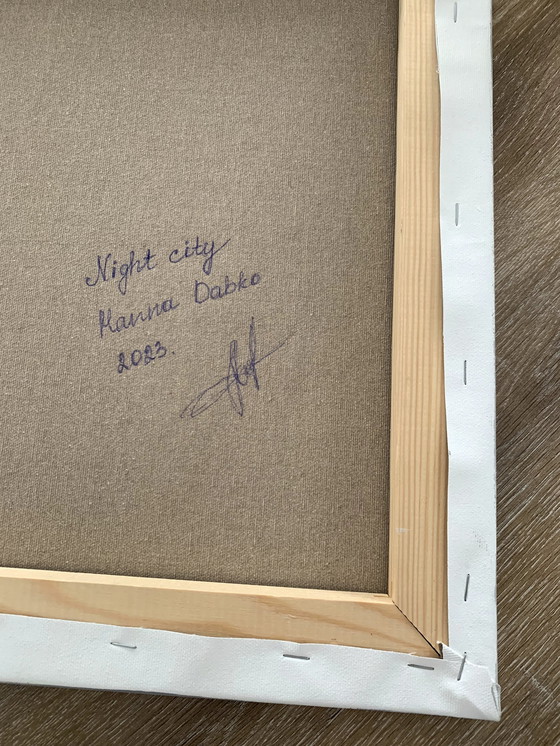 Night city
Hanna Dabko
2023.